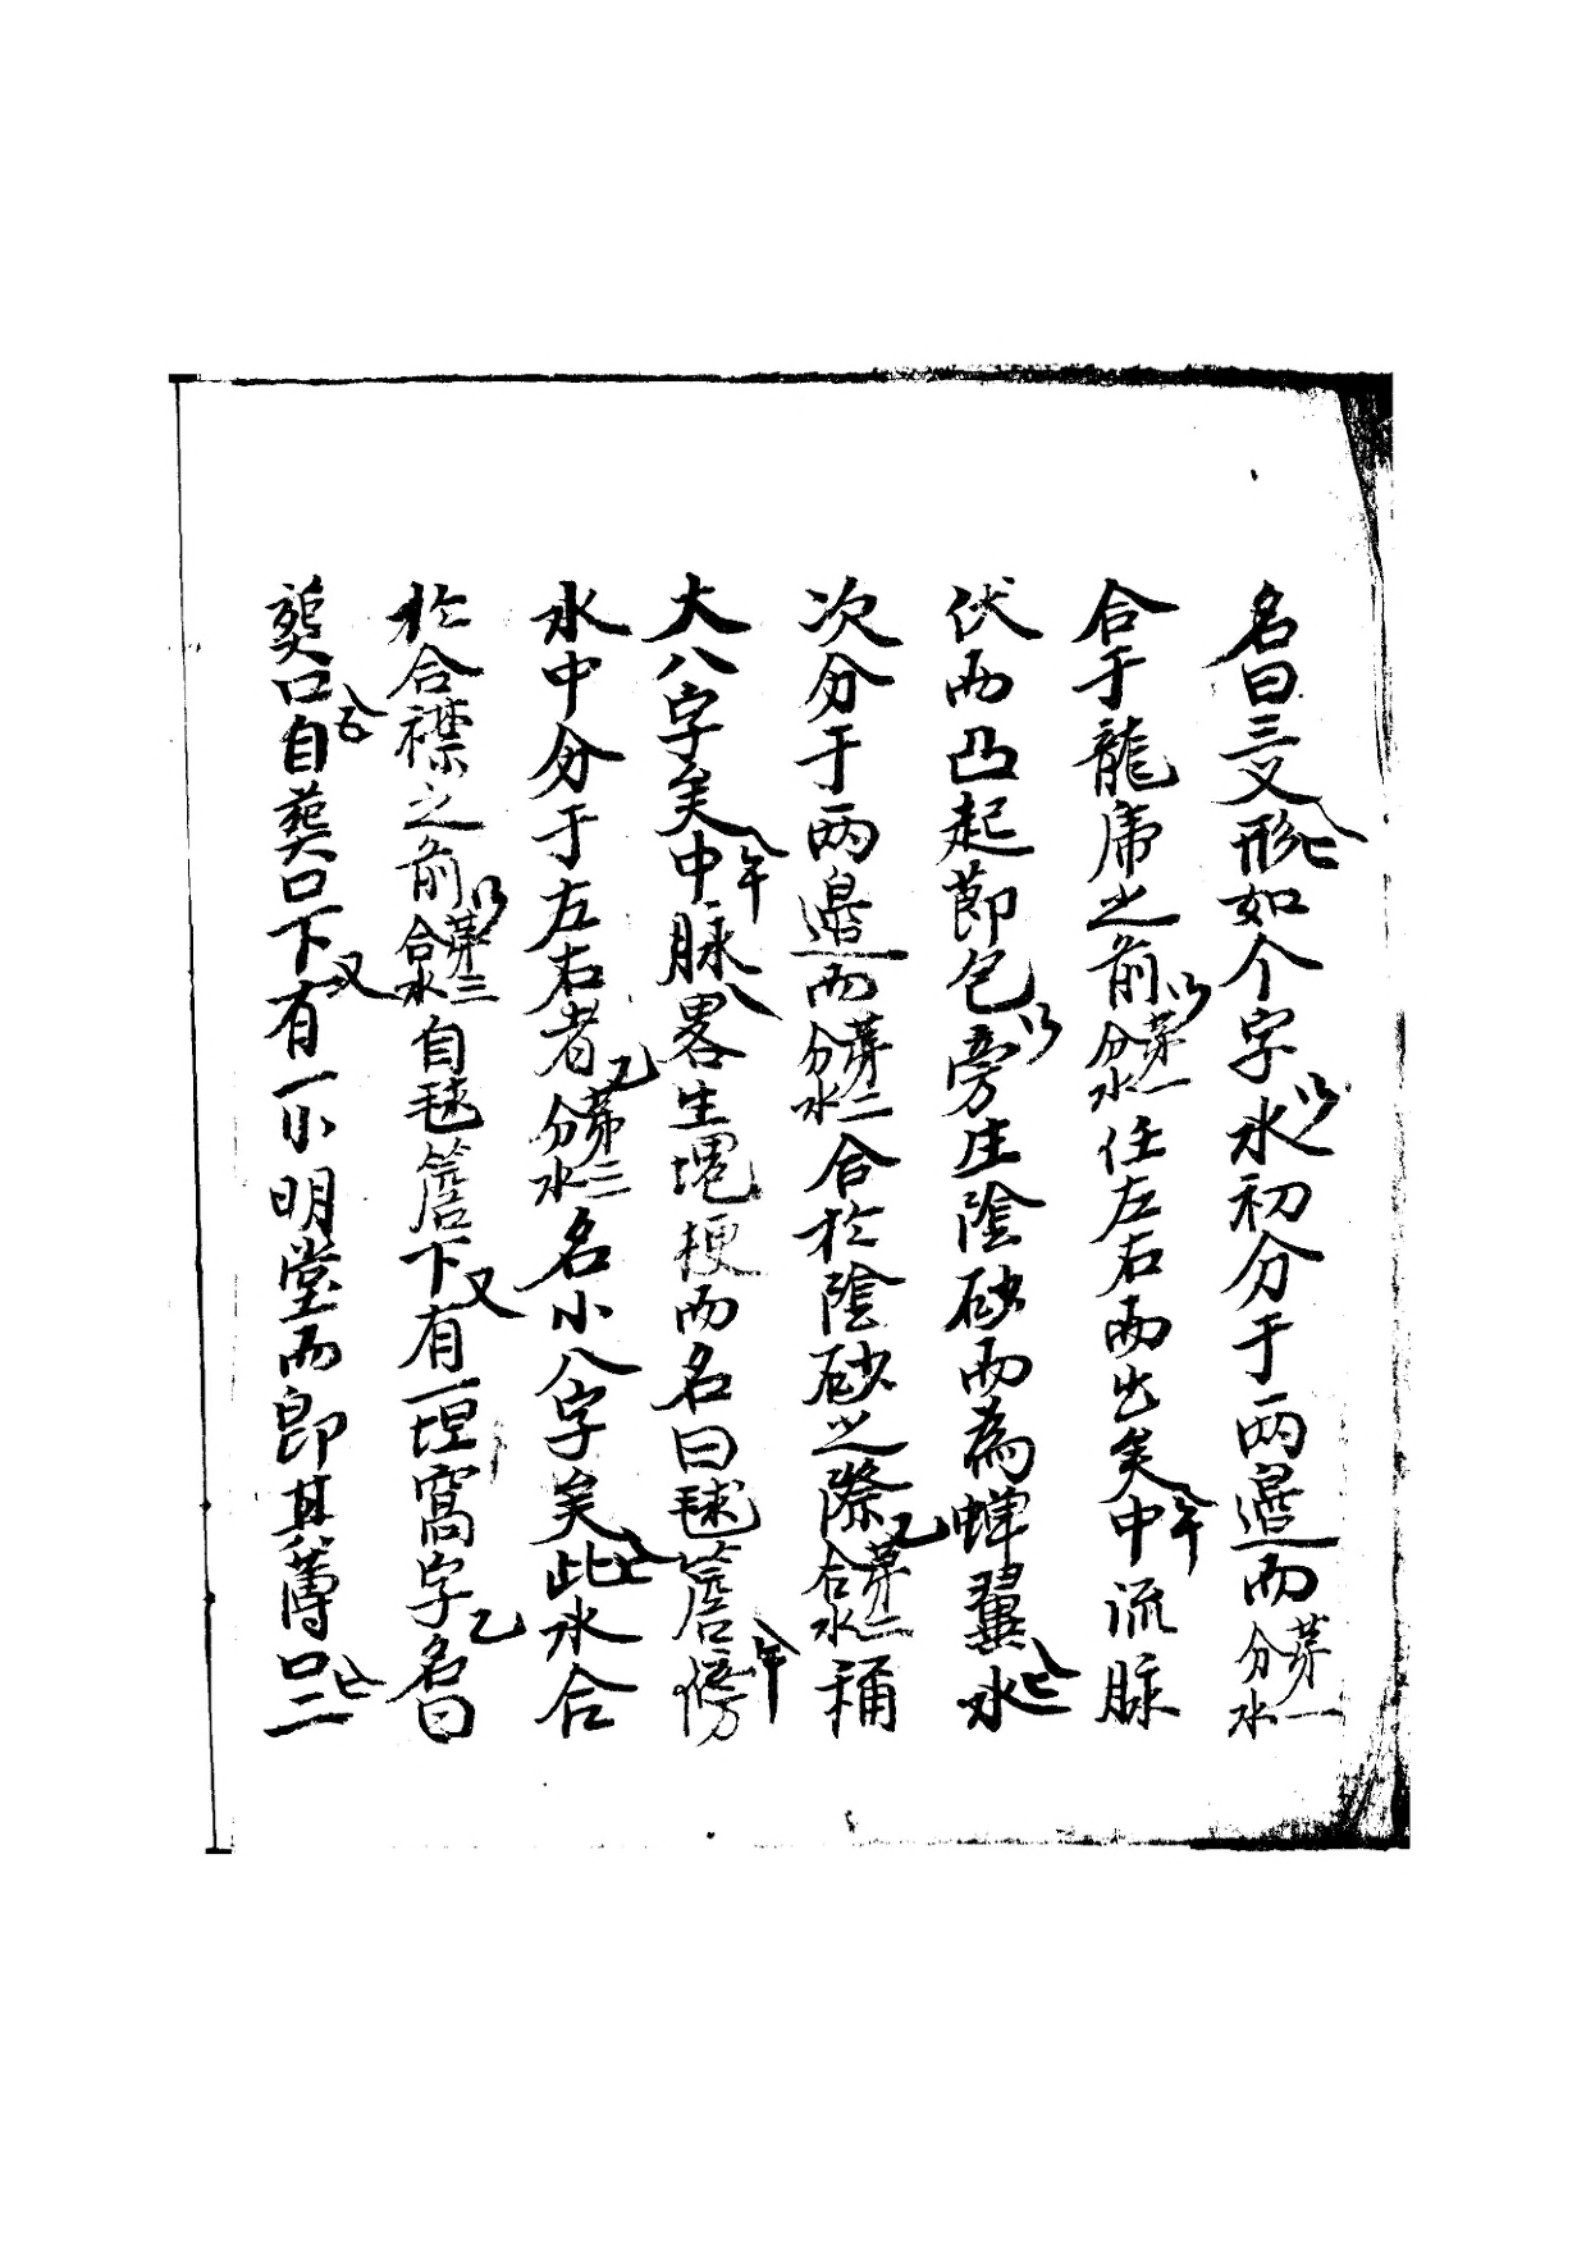 名曰三叉形如个字水初分于兩邉而第一分水
合于龍席之前第一分水任左右而出矣中流脉
伏而凸起莭包旁生隂砂而為蟬翼水
次分于两邉而第二分水合於隂砂之際第二合水稱
大八字矣中脉畧生塊梗而名曰毬簷傍
水中分于左右者第三分水名小八字矣此水合
於合襟之前第三合水自毬簷下有一坦窩字名曰
葬口自葬口下有一小明堂而即其薄口二